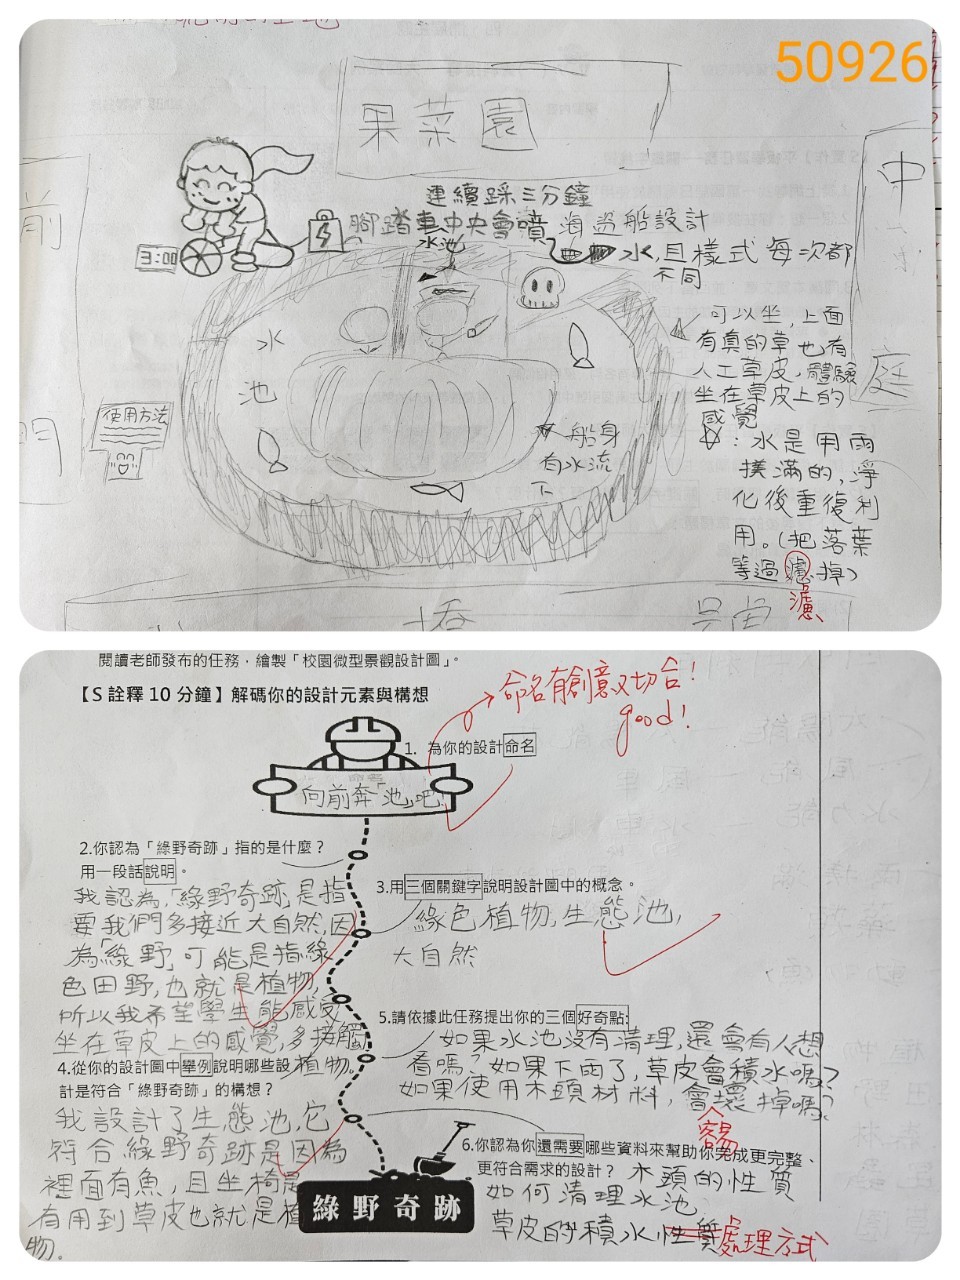 50926
果菜園
中
庭
前
連續踩三分鐘
腳踏車中央會噴
水池
3:00
海盜船設計
水,且樣式每次都
不同
可以坐,上面
有真的草也有
人工草皮,體驗
坐在草皮上的
感覺
水
池
使用方法
船身
有水流
下
☆:水是用雨
撲滿的,淨
化後重復利
用。(把落葉
等過濾掉)
濾
閱讀老師發布的任務,繪製「校園微型景觀設計圖」。
【S 詮釋 10 分鐘】解碼你的設計元素與構想
命名有創意又切合!
good!
1. 為你的設計命名
向前奔「池」吧!
2.你認為「綠野奇跡」指的是什麼?
用一段話說明。
我認為,「綠野奇跡」是指
要我們多接近大自然,因
為「綠野」可能是指綠
色田野,也就是植物,
所以我希望學生能感受
坐在草皮上的感覺,多接觸
植物。
3.用三個關鍵字說明設計圖中的概念。
綠色植物,生態池,
大自然
4.從你的設計圖中舉例說明哪些設
計是符合「綠野奇跡」的構想?
我設計了生態池,它
符合綠野奇跡是因為
裡面有魚,且坐椅是
有用到草皮也就是植
物。
5.請依據此任務提出你的三個好奇點:
如果水池沒有清理,還會有人想
看嗎?如果下雨了,草皮會積水嗎?
如果使用木頭材料,會壞掉嗎?
容易
6.你認為你還需要哪些資料來幫助你完成更完整、
更符合需求的設計?
木頭的性質
如何清理水池
草皮的積水性質處理方式
綠野奇跡